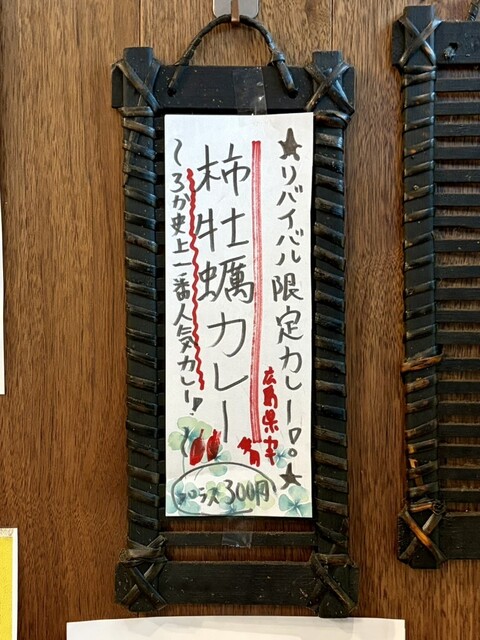 ★リバイバル限定カレー!。★
広島県カキ
柿牡蠣カレー
〜ろか史上一番人気カレー!〜
プラス300円